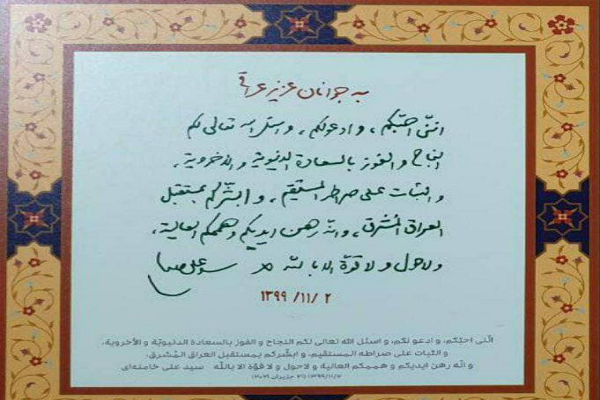 به جوانان عزیز عراق
انني احبّکم، و ادعو لکم، و اسئل الله تعالی لکم
النجاح و الفوز بالسعادة الدنیویة و الأخرویة،
و الثبات علی صراطه المستقیم، و ابشّرکم بمستقبل
العراق المُشرق، و انّه رهن ایدیکم و هممکم العالیة،
ولاحول و لا قوّة الا بالله سید علی خامنه‌ای
۱۳۹۹/۱۱/۲
انّني احبّکم، و ادعو لکم، و اسئل الله تعالی لکم النجاح و الفوز بالسعادة الدنیویّة و الأخرویة،
و الثبات علی صراطه المستقیم، و ابشّرکم بمستقبل العراق المُشرق،
و انّه رهن ایدیکم و هممکم العالیة و لاحول و لا قوّة الا بالله سید علی خامنه‌ای